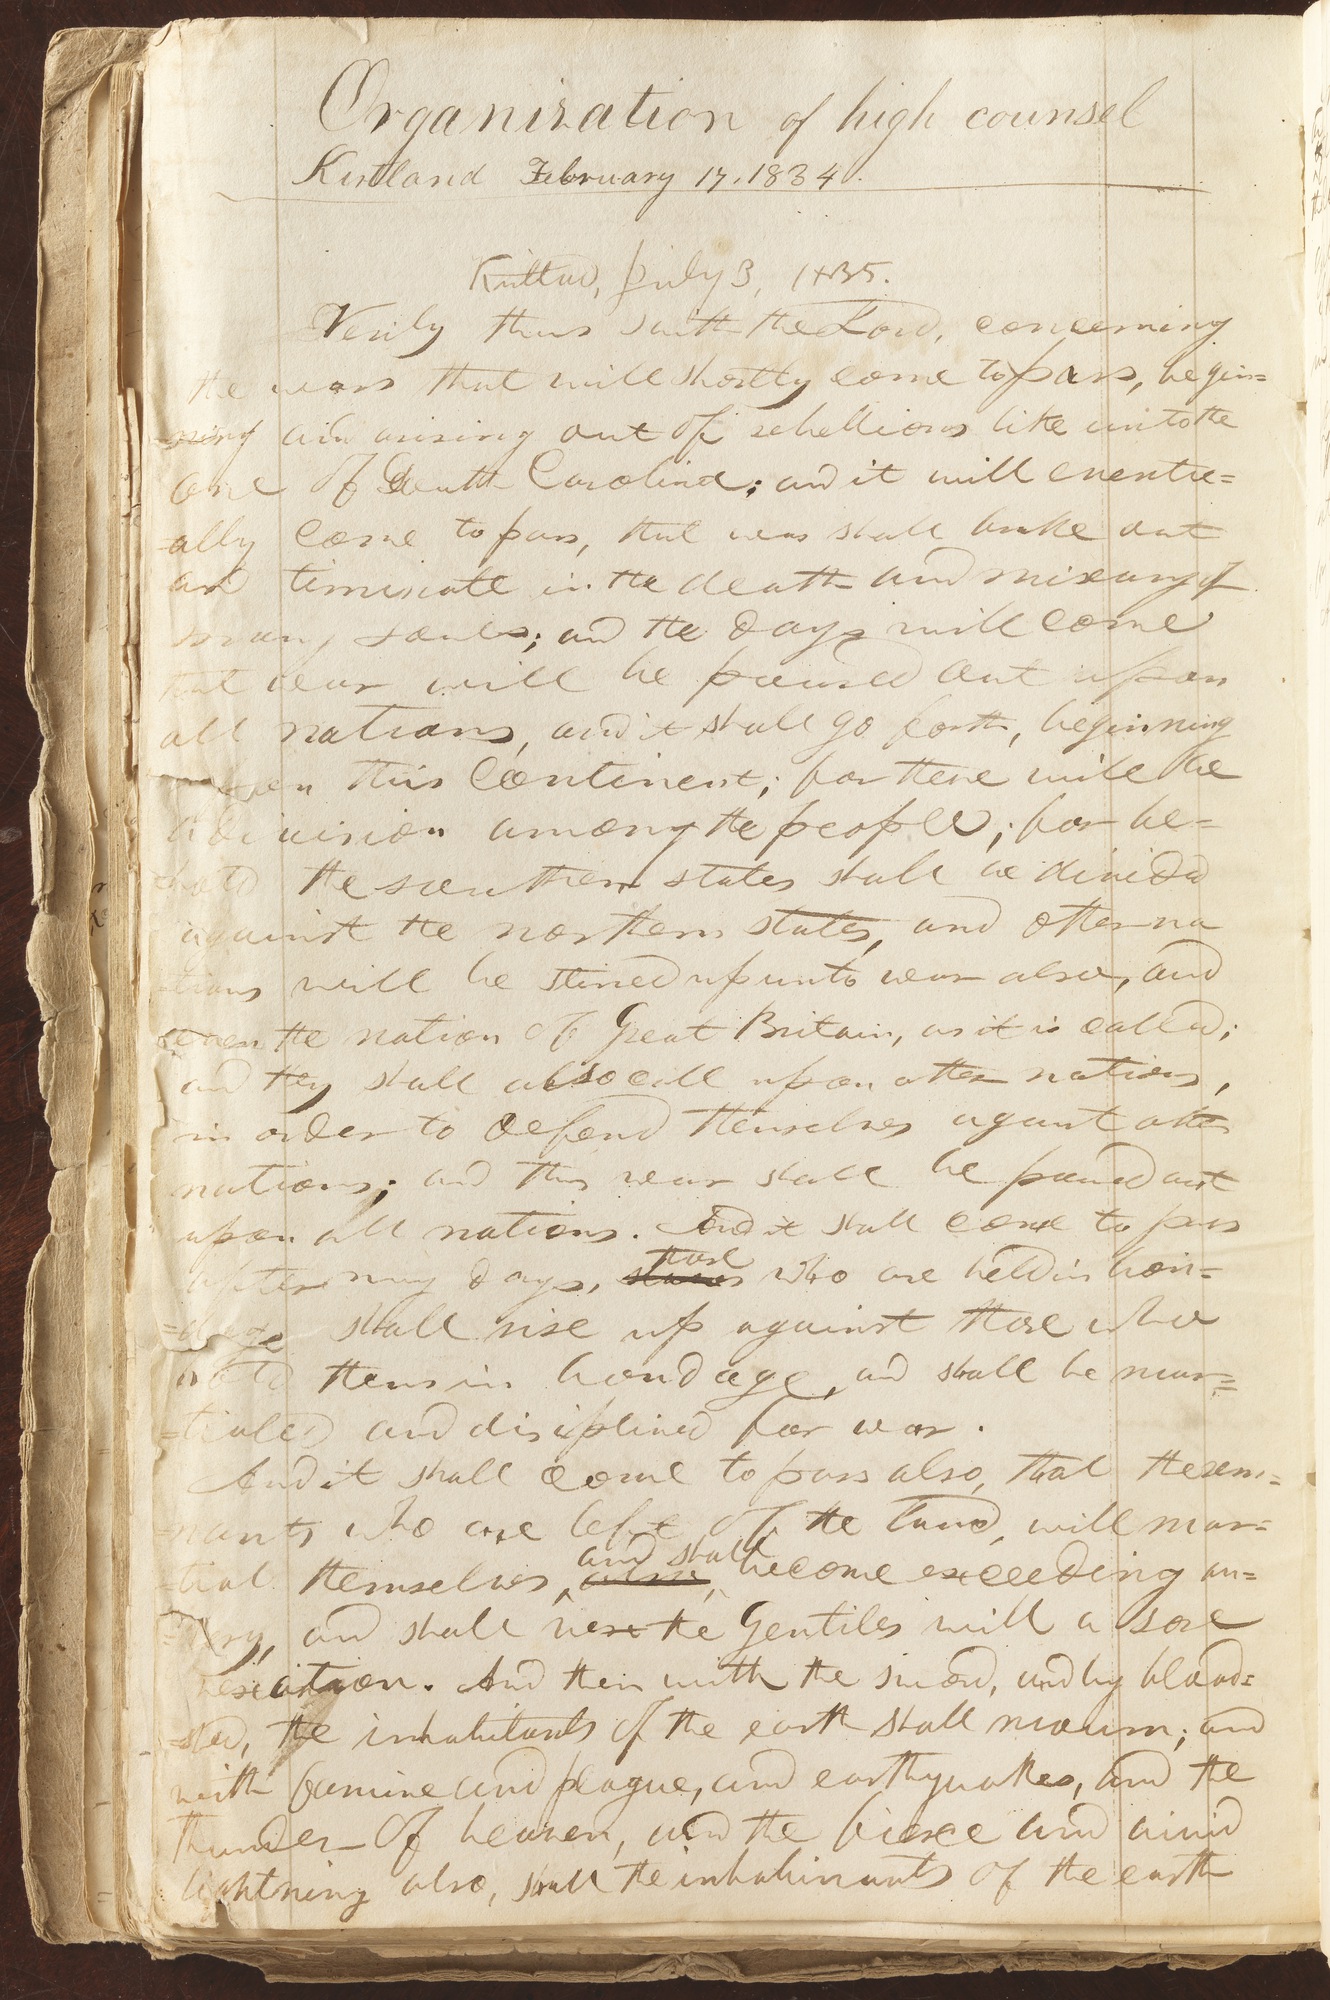 Organization of high counsel
Kirtland February 17. 1834.
Kirtland, July 3, 1835.
Verily thus saith the Lord, concerning
the wars that will shortly come to pass, begin=
=ning and arising out of rebellions like unto the
one of South Carolina; and it will eventu=
=ally come to pass, that war shall brake out
and terminate in the death and misery of
many souls; and the days will come
that war will be poured out upon
all nations, and it shall go forth, beginning
upon this continent; for there will be
a division among the people; for be=
=hold the southern states shall be divided
against the northern states, and other na
tions will be stirred up unto war also, and
even the nation of Great Britain, as it is called;
and they shall also call upon other nations,
in order to defend themselves against other
nations; and thus war shall be poured out
upon all nations. And it shall come to pass
after my days, slaves those who are held in bon=
=dage shall rise up against those who
hold them in bondage, and shall be mar=
=tialed and disciplined for war.
And it shall come to pass also, that the rem=
=nants who are left of the land, will mar=
=tial themselves, and shall become exceeding an=
=gry, and shall vex the Gentiles with a sore
vexation. And then with the sword, and by blood=
=shed, the inhabitants of the earth shall mourn; and
with famine and plague, and earthquakes, and the
thunder of heaven, and the fierce and vivid
lightning also, shall the inhabinants of the earth